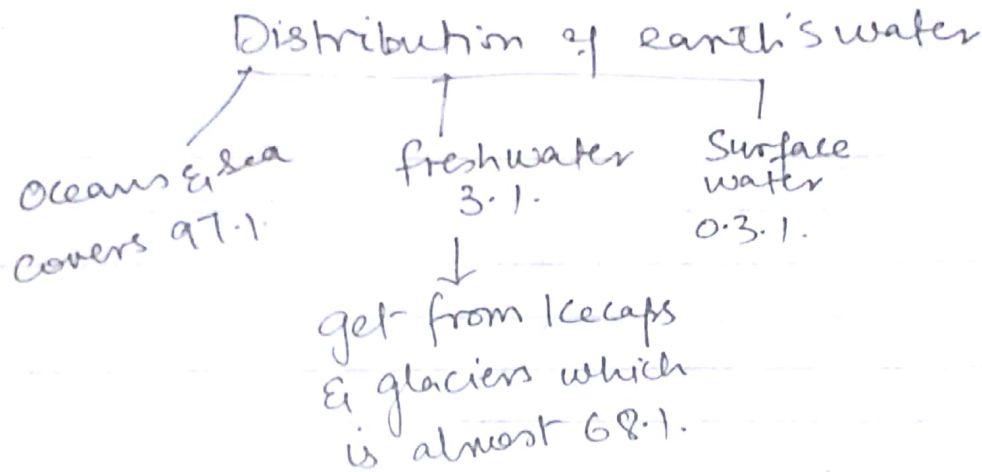 Distribution of earth's water
Oceans & sea
covers 97%
freshwater
3%
Surface
water
0.3%
get from Icecaps
& glaciers which
is almost 68%